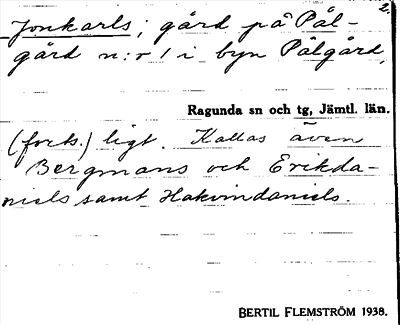 2.
Jonkarls; gård på Pål-
gård n:r 1 i byn Pålgård,
Ragunda sn och tg, Jämtl. län.
(forts.) ligt. Kallas även
Bergmans och Erikda-
niels samt Hakvindaniels.
BERTIL FLEMSTRÖM 1938.